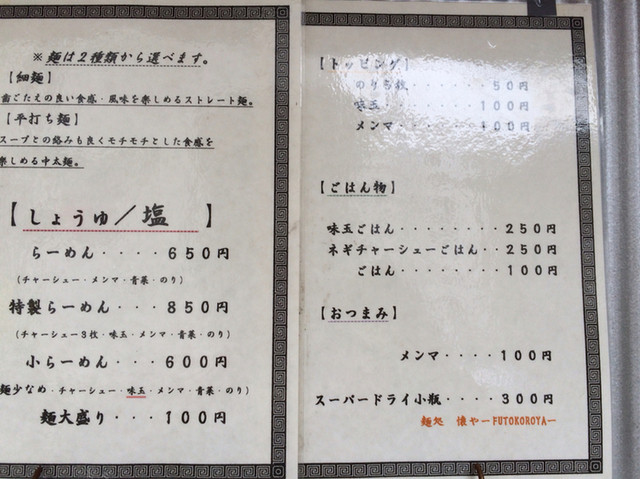 ※麺は2種類から選べます。
【細麺】
歯ごたえの良い食感・風味を楽しめるストレート麺。
【平打ち麺】
スープとの絡みも良くモチモチとした食感を
楽しめる中太麺。
【しょうゆ／塩　】
らーめん・・・・650円
(チャーシュー・メンマ・青菜・のり)
特製らーめん・・・850円
(チャーシュー3枚・味玉・メンマ・青菜・のり)
小らーめん・・・600円
麺少なめ・チャーシュー・味玉・メンマ・青菜・のり)
麺大盛り・・・100円
【トッピング】
のり5枚・・・・・・・50円
味玉・・・・・・・100円
メンマ・・・・・・100円
【ごはん物】
味玉ごはん・・・・・・・・250円
ネギチャーシューごはん・・250円
ごはん・・・・・・・・100円
【おつまみ】
メンマ・・・・100円
スーパードライ小瓶・・・・300円
麺処　懐やーFUTOKOROYAー